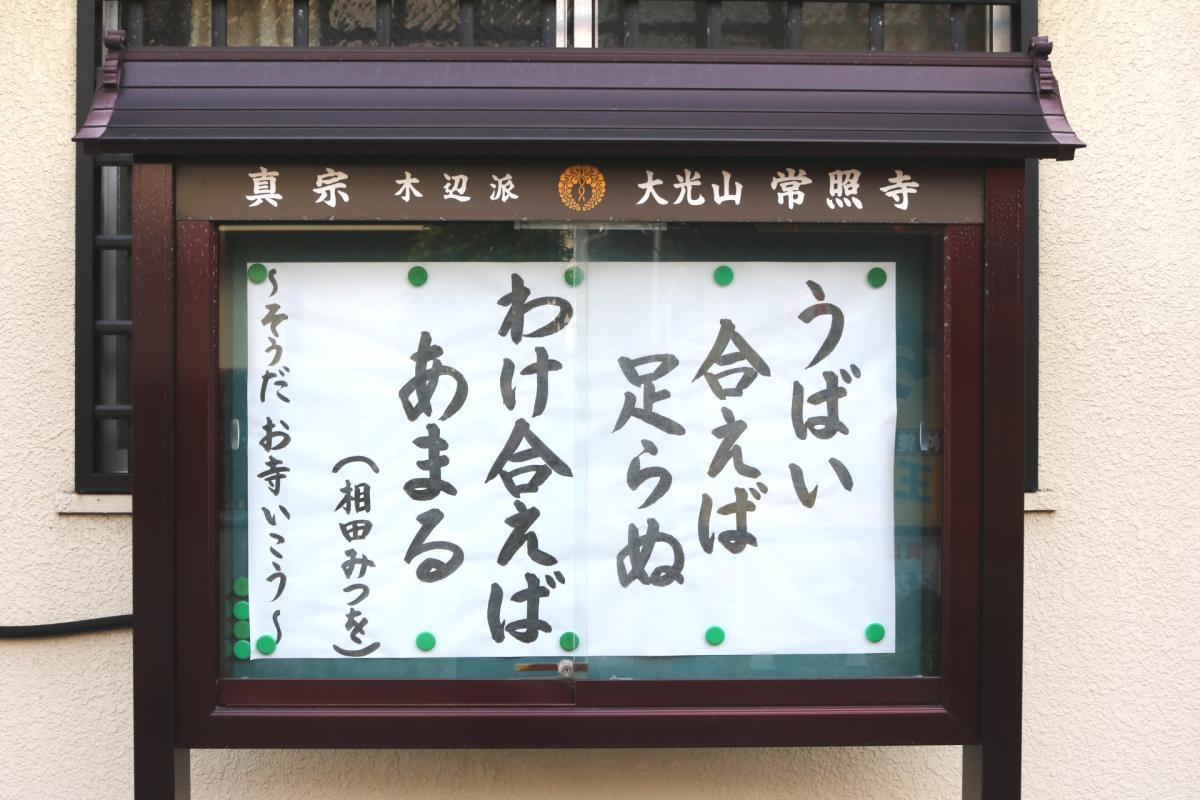 真宗 木辺派 大光山 常照寺
うばい
合えば
足らぬ
わけ合えば
あまる
(相田みつを)
～そうだ お寺いこう～